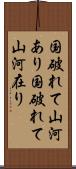 国破れて山河
あり国破れて
山河在り